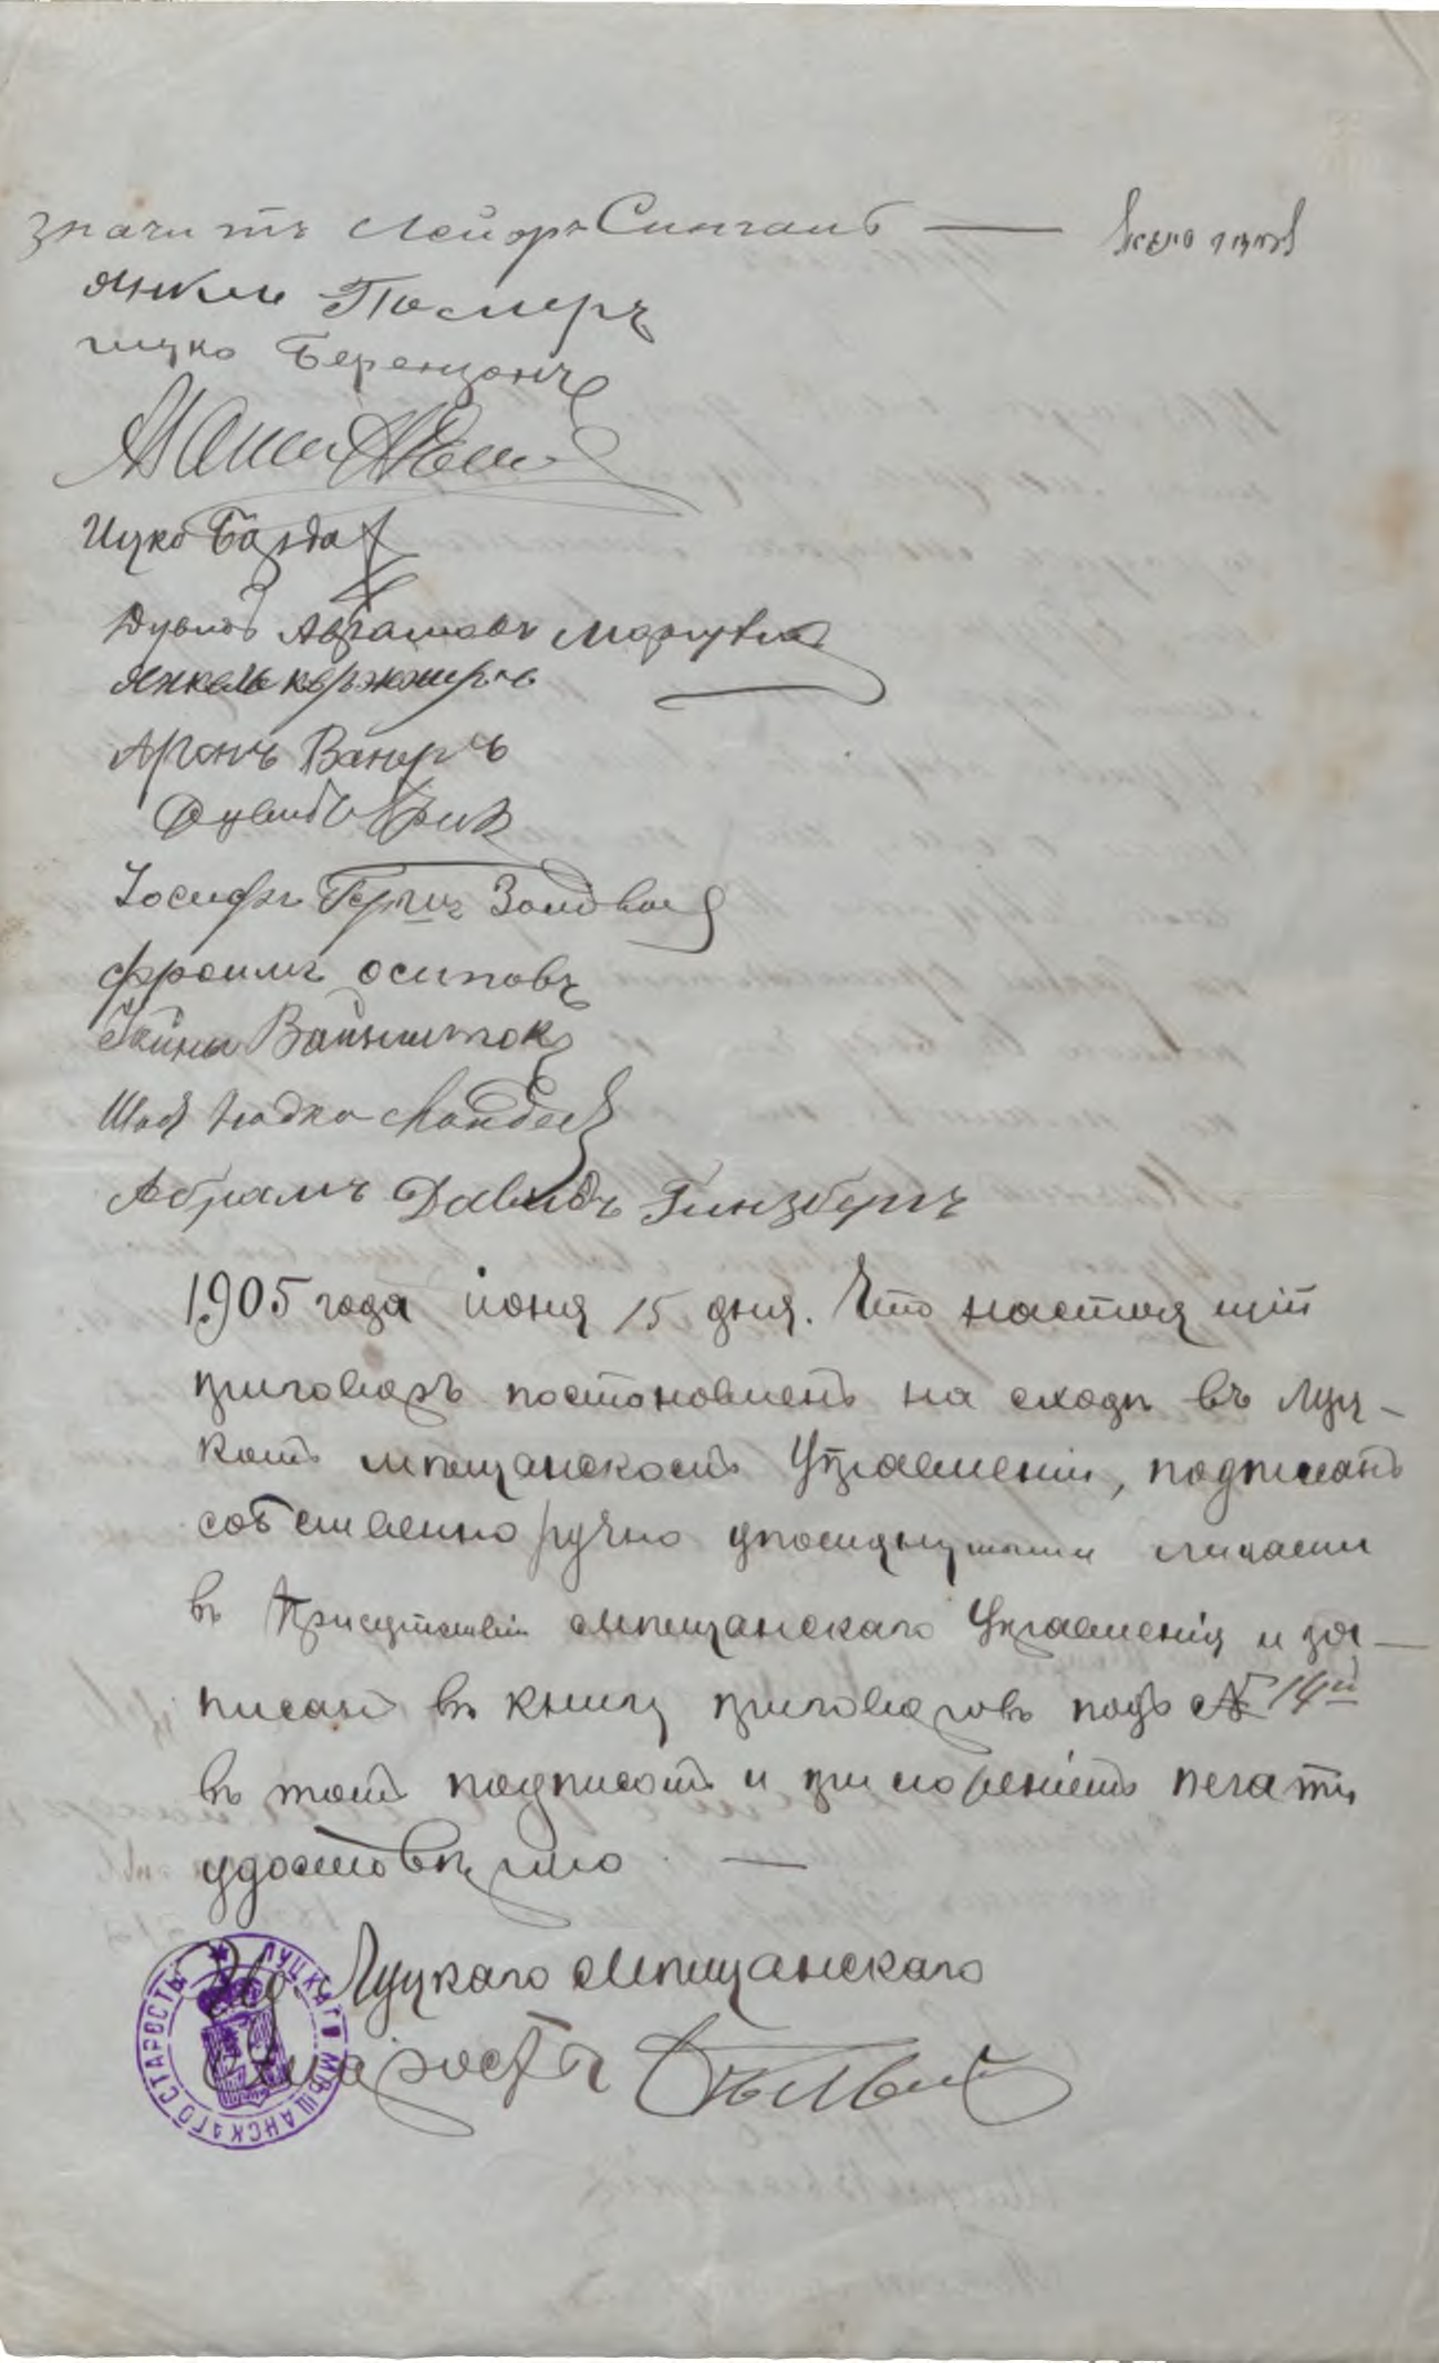 значитъ Лейзръ Сингалъ —
Янкель Памеръ
Ицко Беренцонъ
Ицко
Дувидъ Аврамовъ
Янкель
Аронъ Ванеръ
Дувидъ
Іосифъ Герш
Фроимъ Осиповъ
Вайнштокъ
Шая Юдко Мандель
Абрамъ Давидъ Гинзбергъ
1905 года іюня 15 дня. Что настоящій
приговоръ постановленъ на сходѣ въ Луц-
комъ мѣщанскомъ Управленіи, подписанъ
собственноручно упомянутыми лицами
въ Присутствіи мѣщанскаго Управленія и за-
писанъ въ книгу приговоровъ подъ № 14й
въ томъ подписомъ и приложеніемъ печати
удостовѣряю. —
И.д. Луцкаго Мѣщанскаго
Старосты
ЛУЦКАГО МѢЩАНСКАГО СТАРОСТЫ